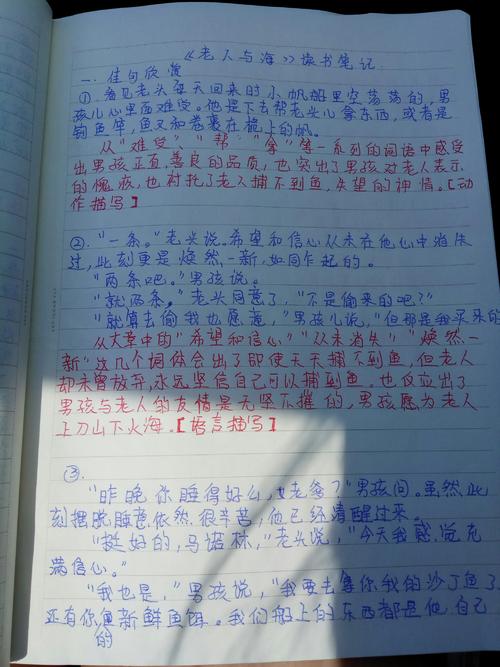 《老人与海》读书笔记
一、佳句欣赏
①看见老头每天回来时小帆船里空荡荡的,男
孩儿心里面难受。他是下去帮老头儿拿东西,或者是
钓鱼竿,鱼叉和卷裹在桅上的帆。
从“难受”、“帮”“拿”等一系列的词语中感受
出男孩正直、善良的品质,也突出了男孩对老人表示
的愧疚,也衬托了老人捕不到鱼,失望的神情。[动
作描写]
②“一条。”老头说。希望和信心从未在他心中消失
过,此刻更是焕然一新,如同乍起的。
“两条吧。”男孩说。
“就两条。”老头同意了,“不是偷来的吧?”
“就算去偷我也愿意,”男孩儿说,“但那是我买来的
从文章中的“希望和信心”“从未消失”“焕然一
新”这几个词体会出了即使天天捕不到鱼,但老人
却未曾放弃,永远坚信自己可以捕到鱼。也反应出了
男孩与老人的友情是无坚不摧的,男孩愿为老人
上刀山下火海。[语言描写]
③
“昨晚你睡得好么,老爸?”男孩问。虽然此
刻摆脱睡意依然很辛苦,他已经清醒过来。
“挺好的,马诺林,”老头说,“今天我感觉充
满信心。”
“我也是,”男孩说,“我要去拿你我的沙丁鱼了,
还有你的新鲜鱼饵。我们船上的东西都是他自己